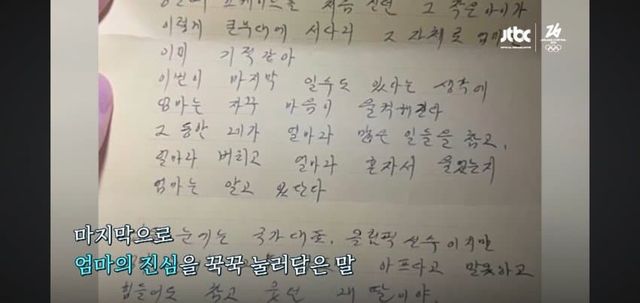 처음 신던 그 작은아이가
이렇게 큰무대에 서다니 그 자체로 엄마
이미 기적같아
이번이 마지막 일수도 있다는 생각에
엄마는 자꾸 마음이 울컥해진다
그 동안 네가 얼마나 많은 일들을 참고,
얼마나 버티고 얼마나 혼자서 울었는지
엄마는 알고 있단다
눈에는 국가대표, 올림픽 선수이지만
아프다고 말못하고
힘들어도 참고 웃던 내 딸이야.
마지막으로
엄마의 진심을 꾹꾹 눌러담은 말
jtbc
26